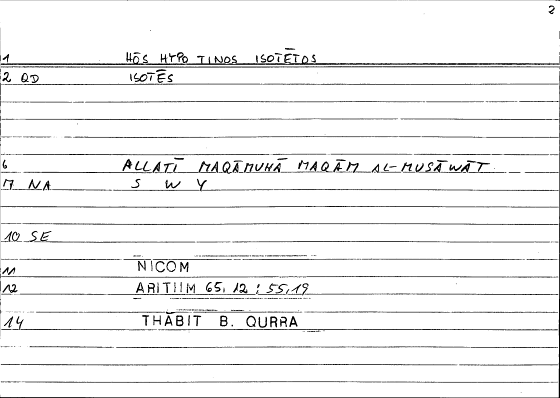 2
1 HŌS HYPO TINOS ISOTĒTOS
2 QD ISOTĒS
6 ALLATĪ MAQĀMUHĀ MAQĀM AL-MUSĀWĀT
7 NA S W Y
10 SE
11 NICOM
12 ARITIIM 65, 12 ; 55,19
14 THĀBIT B. QURRA